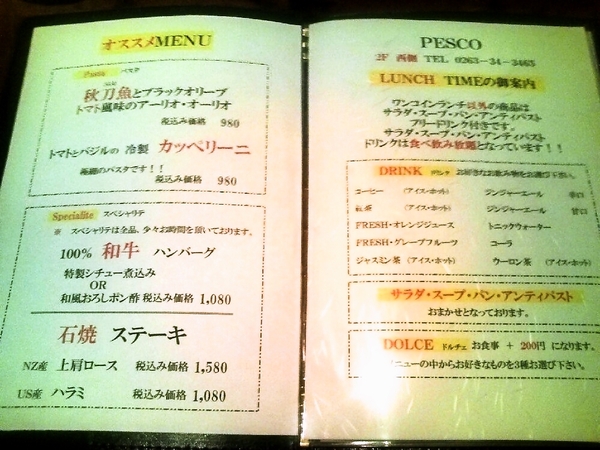 オススメMENU
Pasta パスタ
秋刀魚とブラックオリーブ
トマト風味のアーリオ・オーリオ
税込み価格 980
トマトとバジルの 冷製 カッペリーニ
極細のパスタです！！
税込み価格 980
Specialite スペシャリテ
※ スペシャリテは全品、少々お時間を頂いております。
100% 和牛 ハンバーグ
特製シチュー煮込み
OR
和風おろしポン酢 税込み価格 1,080
石焼 ステーキ
NZ産 上肩ロース 税込み価格 1,580
US産 ハラミ 税込み価格 1,080
PESCO
2F 西側 TEL 0263-34-3463
LUNCH TIMEの御案内
ワンコインランチ以外の商品は
サラダ・スープ・パン・アンティパスト
フリードリンク付きです。
サラダ・スープ・パン・アンティパスト
ドリンクは食べ飲み放題となっています！！
DRINK ドリンク お好きなお飲み物をお選び下さい。
コーヒー （アイス・ホット） ジンジャーエール 辛口
紅茶 （アイス・ホット） ジンジャーエール 甘口
FRESH・オレンジジュース トニックウォーター
FRESH・グレープフルーツ コーラ
ジャスミン茶 （アイス・ホット） ウーロン茶 （アイス・ホット）
サラダ・スープ・パン・アンティパスト
おまかせとなっております。
DOLCE ドルチェ お食事 + 200円 になります。
メニューの中からお好きなものを3種お選び下さい。